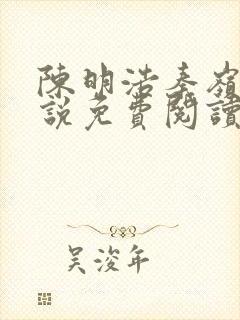 陳明浩秦嶺
說免費閱讀
吴浚年